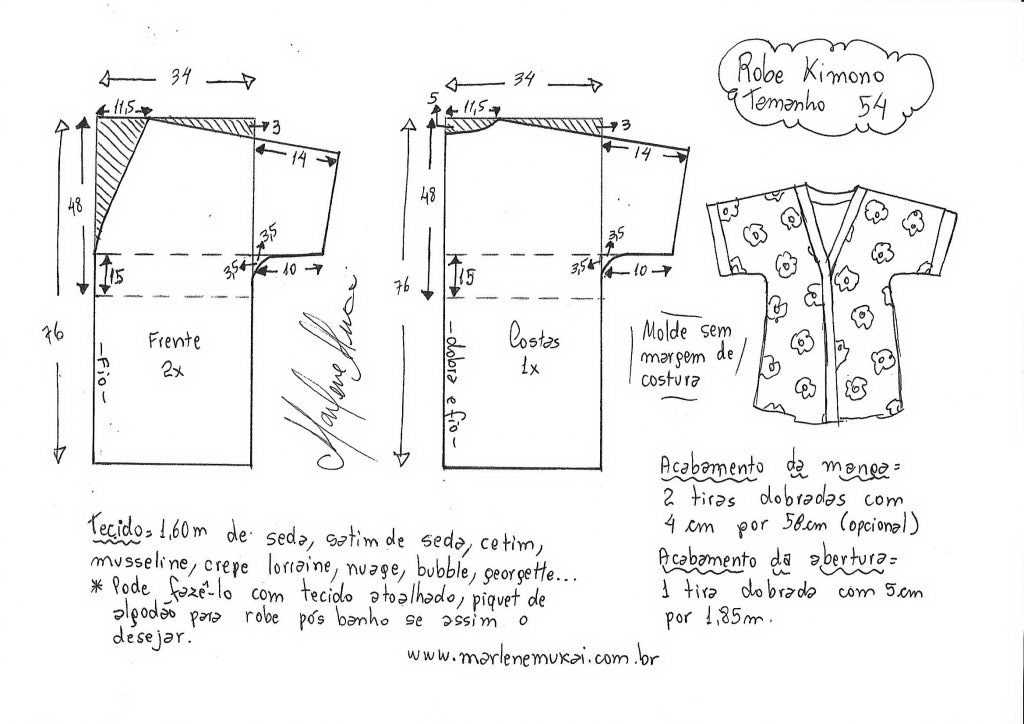 Robe Kimono
Tamanho 54
34
11,5
3
14
48
3,5
3,5
10
15
76
Frente
2x
-Fio-
34
5
11,5
3
14
48
3,5
3,5
10
15
76
Costas
1x
-dobra e fio-
Marlene Mukai
Molde sem
margem de
costura
Tecido= 1,60m de seda, satim de seda, cetim,
musseline, crepe lorraine, nuage, bubble, georgette...
* Pode fazê-lo com tecido atoalhado, piquet de
algodão para robe pós banho se assim o
desejar.
Acabamento da manga=
2 tiras dobradas com
4 cm por 58cm (opcional)
Acabamento da abertura=
1 tira dobrada com 5cm
por 1,85m.
www.marlenemukai.com.br